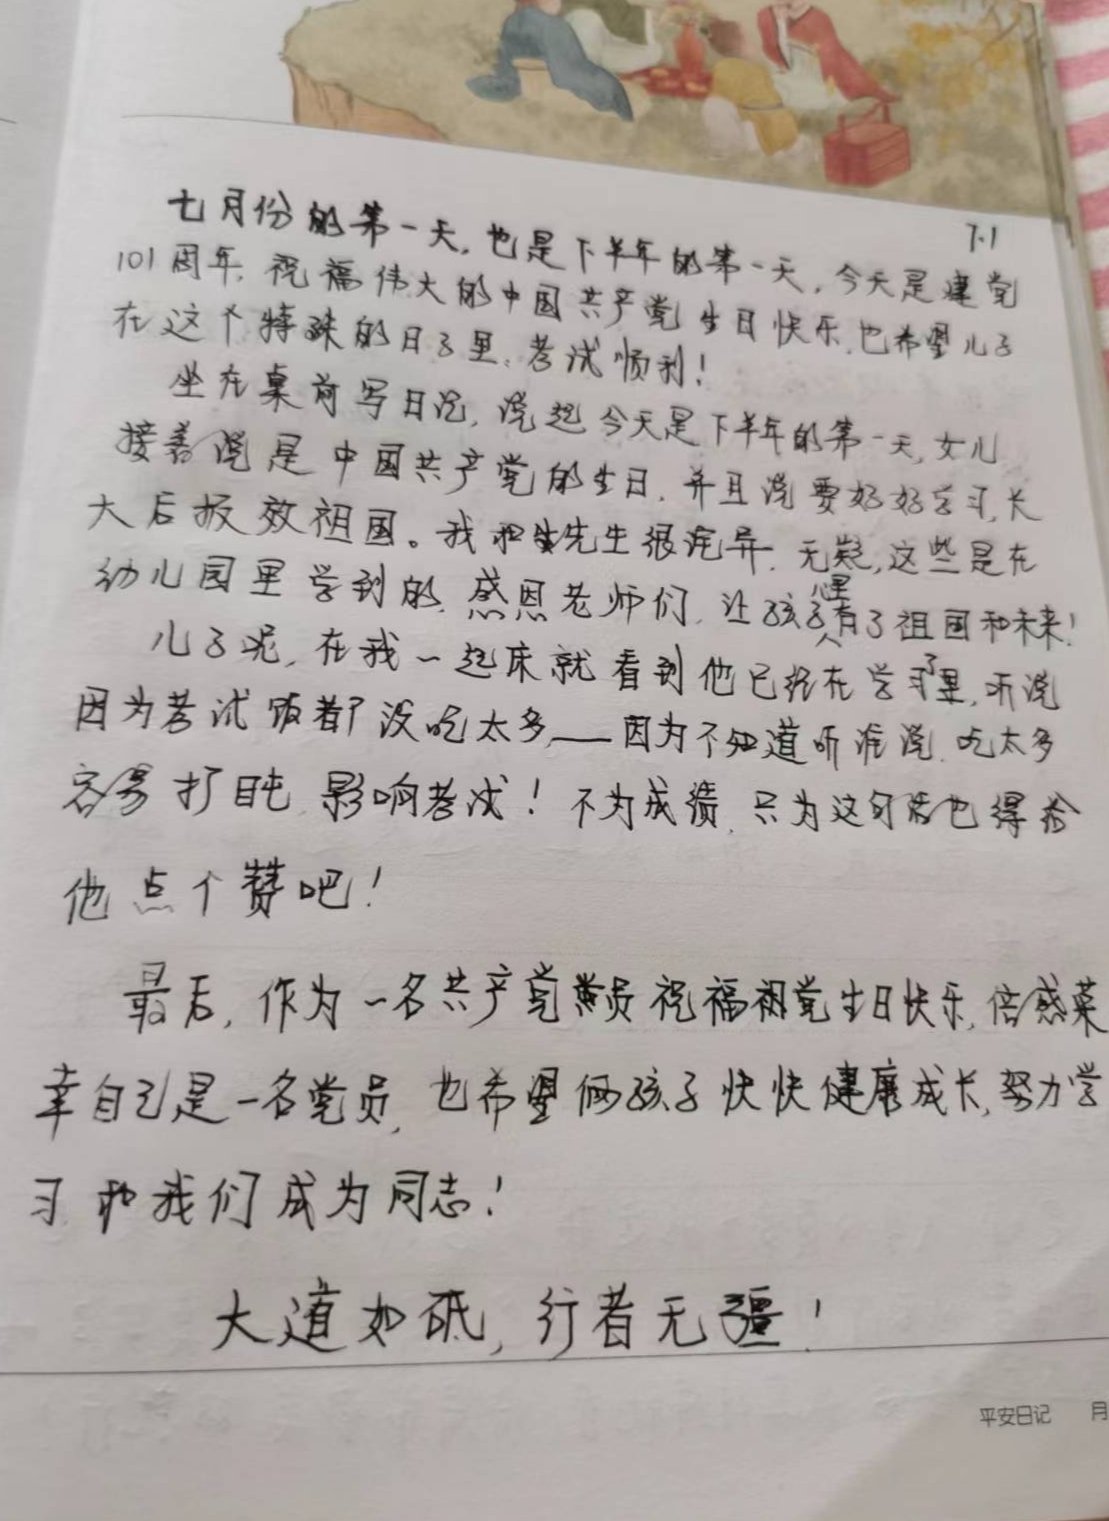 7.1
七月份的第一天,也是下半年的第一天,今天是建党
101周年,祝福伟大的中国共产党生日快乐,也希望儿子
在这个特殊的日子里,考试顺利!
坐在桌前写日记,说起今天是下半年的第一天,女儿
接着说是中国共产党的生日,并且说要好好学习,长
大后报效祖国。我和先生很诧异,无疑,这些是在
幼儿园里学到的,感恩老师们,让孩子心里有了祖国和未来!
儿子呢,在我一起床就看到他已经在学习了,听说
因为考试饭都没吃太多——因为不知道听谁说,吃太多
容易打盹,影响考试!不为成绩,只为这句话也得给
他点个赞吧!
最后,作为一名共产党员祝福党生日快乐,倍感荣
幸自己是一名党员,也希望俩孩子快快健康成长,努力学
习,和我们成为同志!
大道如砥,行者无疆!
平安日记 月